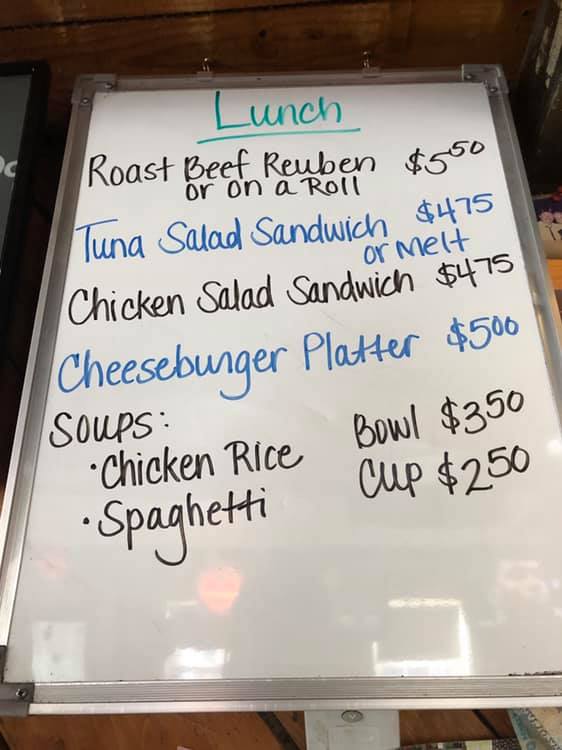 Lunch
Roast Beef Reuben $5.50
or on a Roll
Tuna Salad Sandwich $4.75
or Melt
Chicken Salad Sandwich $4.75
Cheeseburger Platter $5.00
Soups:
• Chicken Rice Bowl $3.50
• Spaghetti Cup $2.50